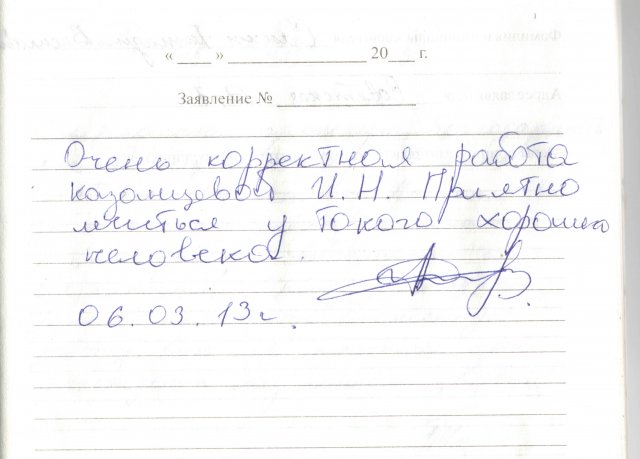 « ___ » ______________ 20___ г.
Заявление № ______________
Очень корректная работа
Казанцевой И. Н. Приятно
лечиться у такого хорошего
человека.
06. 03. 13г.